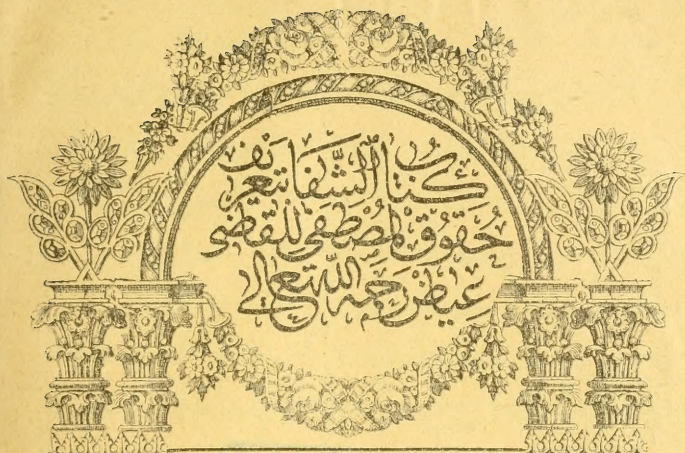 كِتَابُ الشِّفَا بتعريف
حُقُوقِ المُصْطَفَى للقاضى
عياض رَحِمَهُ اللّٰه تعالى